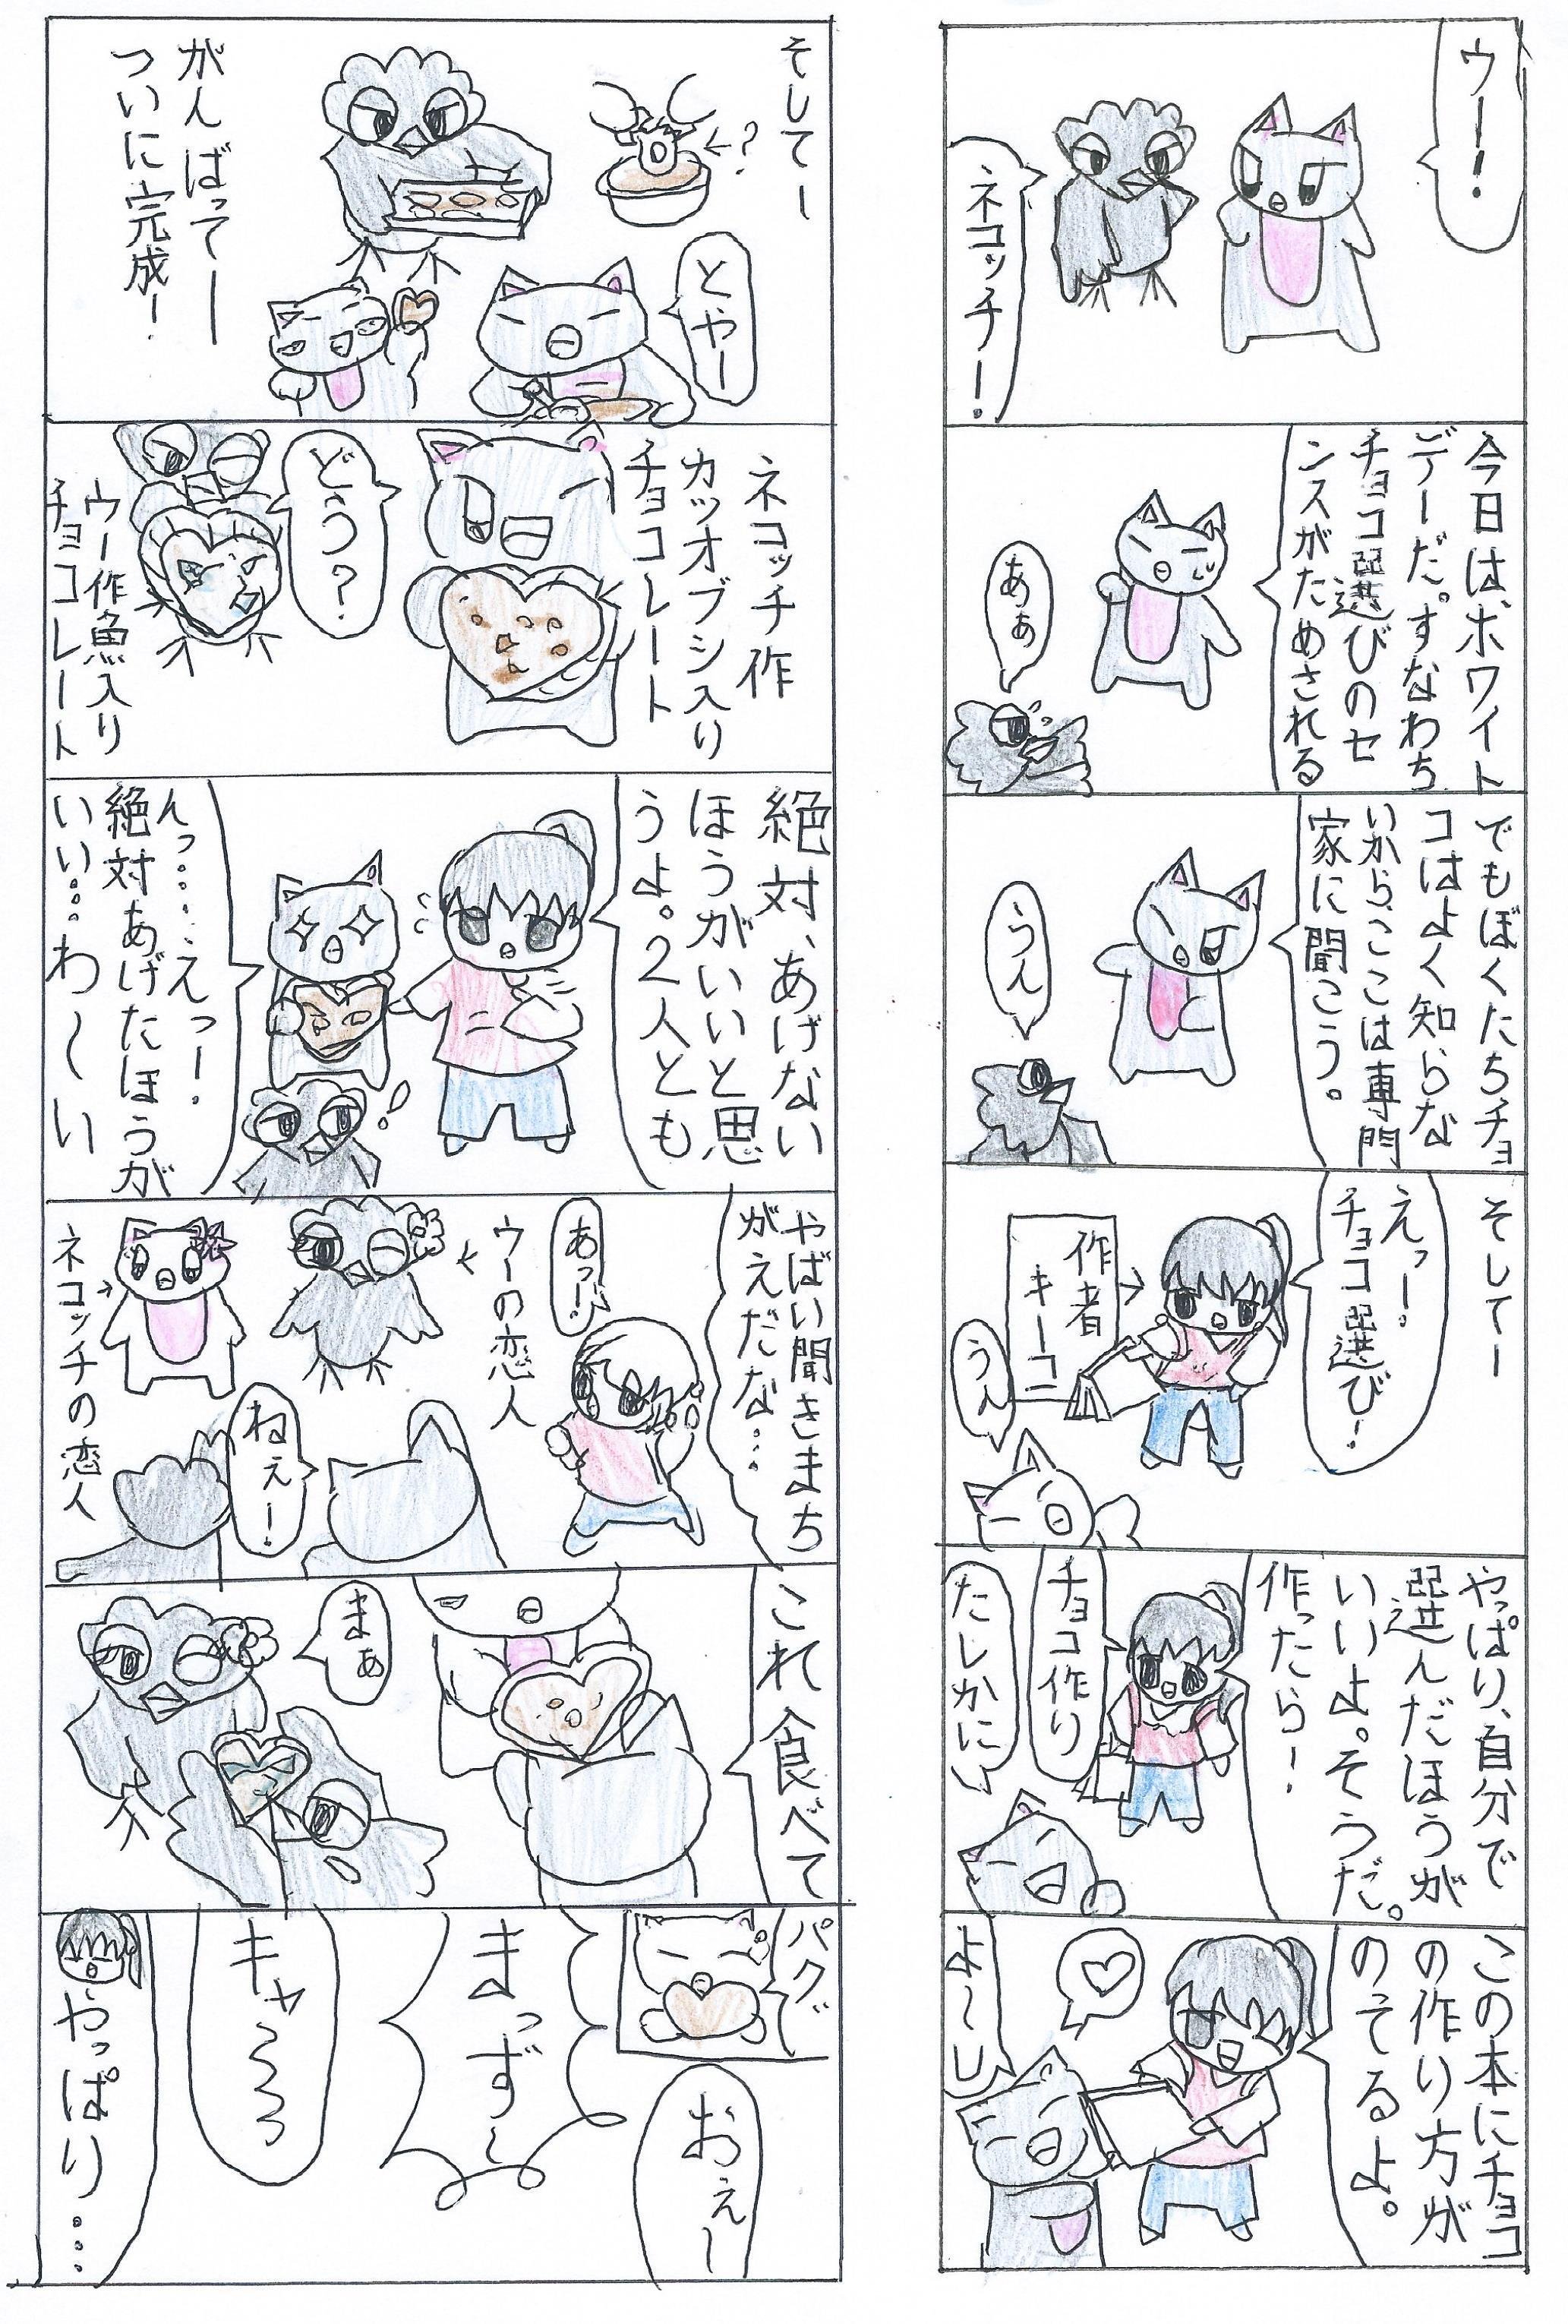 ウー!
ネコッチー!
今日は、ホワイト
デーだ。すなわち
チョコ選びのセ
ンスがためされる
あぁ
でもぼくたちチョ
コはよく知らな
いからここは専門
家に聞こう。
うん
そしてー
えっー!
チョコ選び!
作者
キーコ
うん
やっぱり、自分で
選んだほうが
いいよ。そうだ。
作ったら!
チョコ作り
たしかにい
この本にチョコ
の作り方が
のってるよ。
よ〜し
そしてー
?
とやー
がんばってー
ついに完成!
ネコッチ作
カツオブシ入り
チョコレート
どう?
ウー作魚入り
チョコレート
絶対、あげない
ほうがいいと思
うよ。2人とも
んっ……えっー!
絶対あげたほうが
いい…わ〜い
やばい聞きまち
がえだな…
あっー!
ウーの恋人
ネコッチの恋人
ねぇー!
これ食べて
まぁ
パク
おえ〜
まっず〜
キャ〜〜っ
やっぱり……